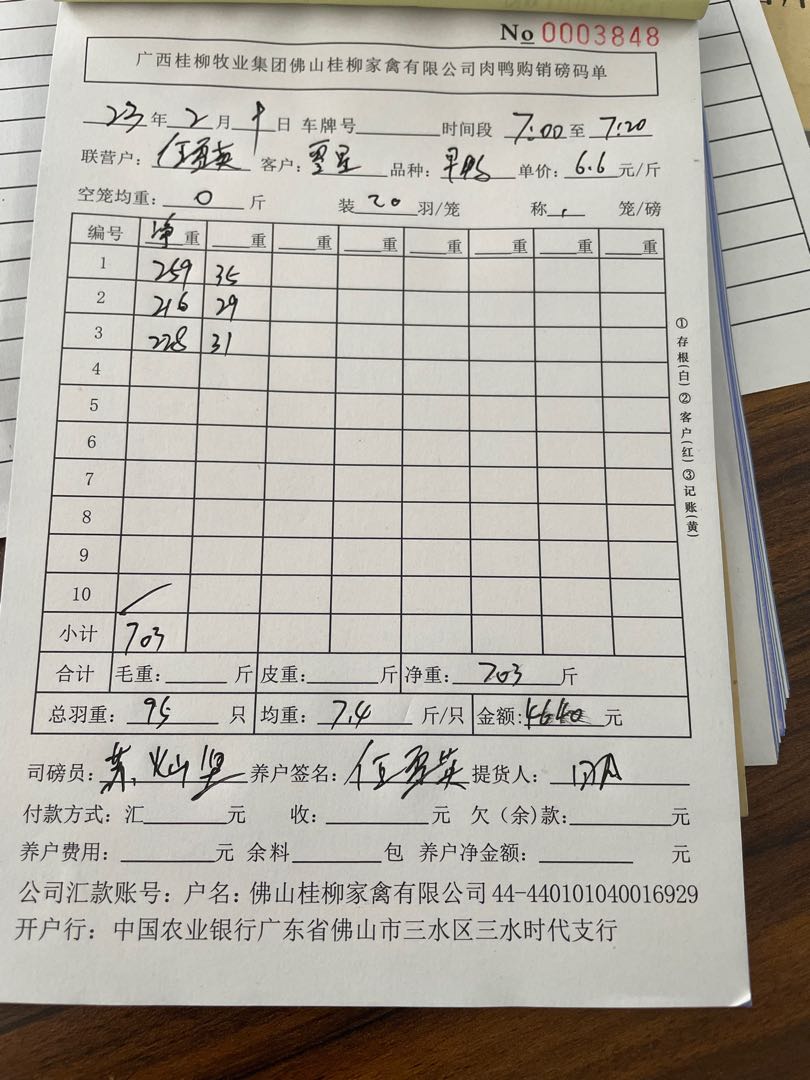 No 0003848
广西桂柳牧业集团佛山桂柳家禽有限公司肉鸭购销磅码单
23年2月 日 车牌号 时间段 7:00至7:20
联营户: 客户: 品种: 单价:6.6元/斤
空笼均重:0斤 装20羽/笼 称 笼/磅
编号 净重 重 重 重 重 重 重 重
1 259 35
2 216 29
3 228 31
4
5
6
7
8
9
10
小计 703
合计 毛重: 斤 皮重: 斤 净重:703斤
总羽重:95只 均重:7.4斤/只 金额:4640元
司磅员: 养户签名: 提货人:
付款方式:汇 元 收: 元 欠(余)款: 元
养户费用: 元 余料 包 养户净金额: 元
公司汇款账号:户名:佛山桂柳家禽有限公司44-440101040016929
开户行:中国农业银行广东省佛山市三水区三水时代支行
①存根(白)②客户(红)③记账(黄)